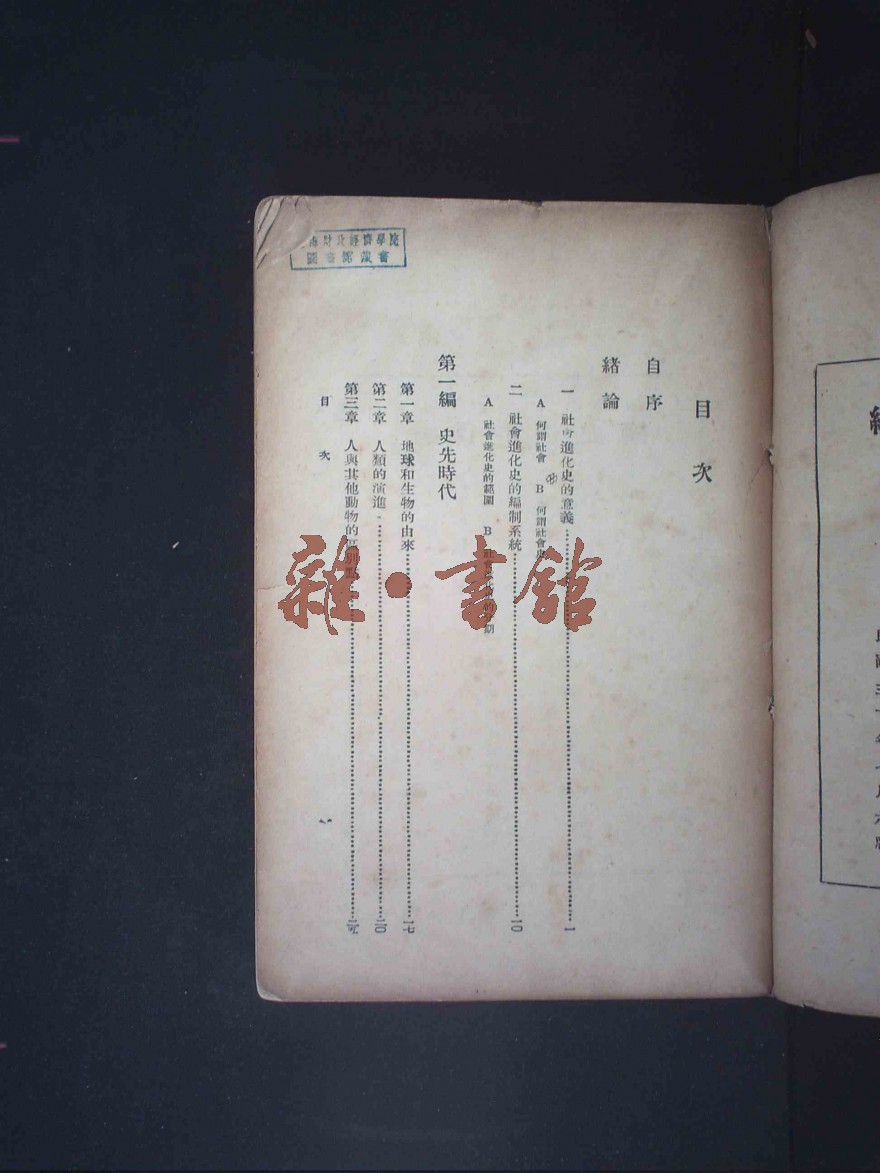 目次
自序
緒論
一 社會進化史的意義……一
A 何謂社會 B 何謂社會史
二 社會進化史的編制系統……一〇
A 社會進化史的範圍 B 社會
第一編 史先時代
第一章 地球和生物的由來……一七
第二章 人類的演進……二〇
第三章 人與其他動物的區別點……
目次
一
財政經濟學院
圖書館藏書
雜·書館